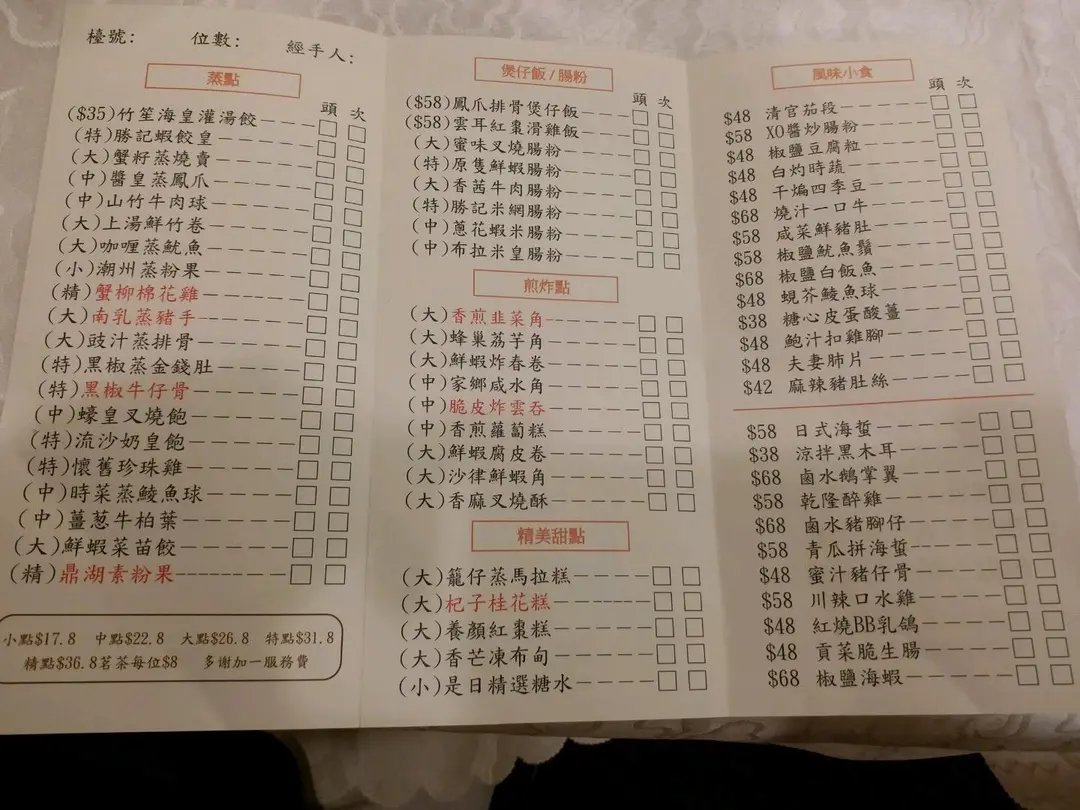 檯號: 位數: 經手人:
蒸點
頭 次
($35)竹笙海皇灌湯餃
(特)勝記蝦餃皇
(大)蟹籽蒸燒賣
(中)醬皇蒸鳳爪
(中)山竹牛肉球
(大)上湯鮮竹卷
(大)咖喱蒸魷魚
(小)潮州蒸粉果
(精)蟹柳棉花雞
(大)南乳蒸豬手
(大)豉汁蒸排骨
(特)黑椒蒸金錢肚
(特)黑椒牛仔骨
(中)蠔皇叉燒飽
(特)流沙奶皇飽
(特)懷舊珍珠雞
(中)時菜蒸鯪魚球
(中)薑蔥牛柏葉
(大)鮮蝦菜苗餃
(精)鼎湖素粉果
小點$17.8 中點$22.8 大點$26.8 特點$31.8
精點$36.8茗茶每位$8 多谢加一服務費
煲仔飯/腸粉
頭 次
($58)鳳爪排骨煲仔飯
($58)雲耳紅棗滑雞飯
(大)蜜味叉燒腸粉
(特)原隻鮮蝦腸粉
(大)香茜牛肉腸粉
(特)勝記米網腸粉
(中)蔥花蝦米腸粉
(中)布拉米皇腸粉
煎炸點
(大)香煎韭菜角
(大)蜂巢荔芋角
(大)鮮蝦炸春卷
(中)家鄉咸水角
(中)脆皮炸雲吞
(中)香煎蘿蔔糕
(大)鮮蝦腐皮卷
(大)沙律鮮蝦角
(大)香麻叉燒酥
精美甜點
(大)籠仔蒸馬拉糕
(大)杞子桂花糕
(大)養顏紅棗糕
(大)香芒凍布甸
(小)是日精選糖水
風味小食
頭 次
$48 清官茄段
$58 XO醬炒腸粉
$48 椒鹽豆腐粒
$48 白灼時蔬
$48 干煸四季豆
$68 燒汁一口牛
$58 咸菜鮮豬肚
$58 椒鹽魷魚鬚
$68 椒鹽白飯魚
$48 蜆芥鯪魚球
$38 糖心皮蛋酸薑
$48 鮑汁扣雞腳
$48 夫妻肺片
$42 麻辣豬肚絲
$58 日式海蜇
$38 涼拌黑木耳
$68 鹵水鵝掌翼
$58 乾隆醉雞
$68 鹵水豬腳仔
$58 青瓜拼海蜇
$48 蜜汁豬仔骨
$58 川辣口水雞
$48 紅燒BB乳鴿
$48 貢菜脆生腸
$68 椒鹽海蝦